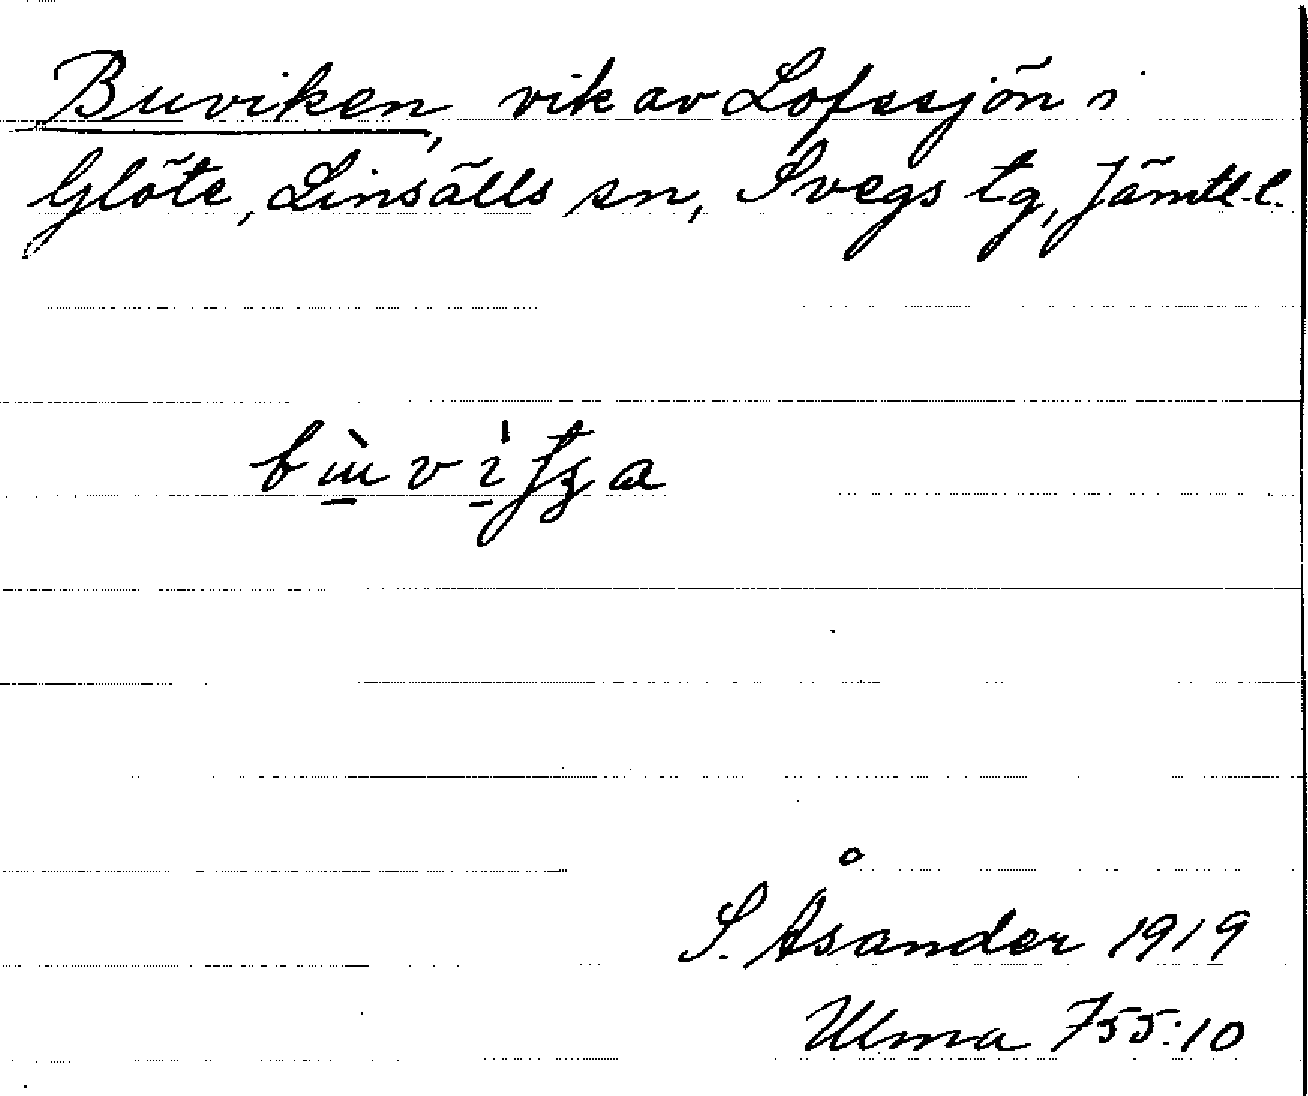 Buviken, vik av Lofssjön i
Glöte, Linsälls sn, Svegs tg, Jämtl. l.
S. Åsander 1919
Ulma 755:10